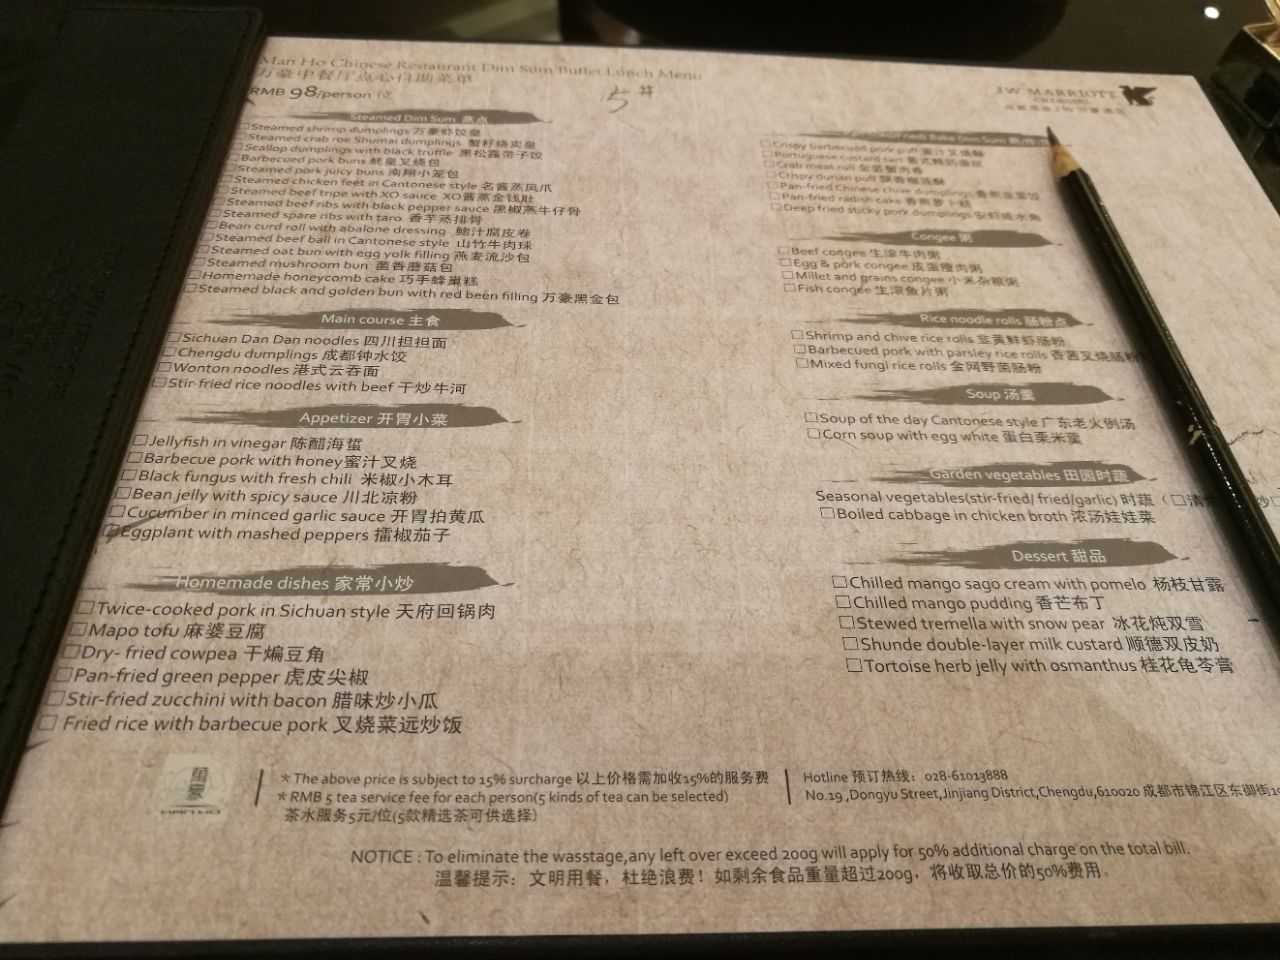 Man Ho Chinese Restaurant Dim Sum Buffet Lunch Menu
万豪中餐厅点心自助菜单
RMB 98/person 位
5#
JW MARRIOTT
CHENGDU
Steamed Dim Sum 蒸点
□Steamed shrimp dumplings 万豪虾饺皇
□Steamed crab roe Shumai dumplings 蟹籽烧卖皇
□Scallop dumplings with black truffle 黑松露带子饺
□Barbecued pork buns 蚝皇叉烧包
□Steamed pork juicy buns 南翔小笼包
□Steamed chicken feet in Cantonese style 名酱蒸凤爪
□Steamed beef tripe with XO sauce XO酱蒸金钱肚
□Steamed beef ribs with black pepper sauce 黑椒蒸牛仔骨
□Steamed spare ribs with taro 香芋蒸排骨
□Bean curd roll with abalone dressing 鲍汁腐皮卷
□Steamed beef ball in Cantonese style 山竹牛肉球
□Steamed oat bun with egg yolk filling 燕麦流沙包
□Steamed mushroom bun 菌香蘑菇包
□Homemade honeycomb cake 巧手蜂巢糕
□Steamed black and golden bun with red been filling 万豪黑金包
Main course 主食
□Sichuan Dan Dan noodles 四川担担面
□Chengdu dumplings 成都钟水饺
□Wonton noodles 港式云吞面
□Stir-fried rice noodles with beef 干炒牛河
Appetizer 开胃小菜
□Jellyfish in vinegar 陈醋海蜇
□Barbecue pork with honey 蜜汁叉烧
□Black fungus with fresh chili 米椒小木耳
□Bean jelly with spicy sauce 川北凉粉
□Cucumber in minced garlic sauce 开胃拍黄瓜
□Eggplant with mashed peppers 擂椒茄子
Homemade dishes 家常小炒
□Twice-cooked pork in Sichuan style 天府回锅肉
□Mapo tofu 麻婆豆腐
□Dry- fried cowpea 干煸豆角
□Pan-fried green pepper 虎皮尖椒
□Stir-fried zucchini with bacon 腊味炒小瓜
□Fried rice with barbecue pork 叉烧菜远炒饭
□Crispy barbecued pork puff 蜜汁叉烧酥
□Portuguese custard tart
□Crab meat roll
□Crispy durian puff 飘香榴莲酥
□Pan-fried Chinese chive dumplings 香煎韭菜饺
□Pan-fried radish cake 香煎萝卜糕
□Deep fried sticky pork dumplings 安虾咸水角
Congee 粥
□Beef congee 生滚牛肉粥
□Egg & pork congee 皮蛋瘦肉粥
□Millet and grains congee 小米杂粮粥
□Fish congee 生滚鱼片粥
Rice noodle rolls 肠粉点
□Shrimp and chive rice rolls 韭黄鲜虾肠粉
□Barbecued pork with parsley rice rolls 香茜叉烧肠粉
□Mixed fungi rice rolls 金网野菌肠粉
Soup 汤羹
□Soup of the day Cantonese style 广东老火例汤
□Corn soup with egg white 蛋白粟米羹
Garden vegetables 田园时蔬
Seasonal vegetables(stir-fried/ fried/garlic) 时蔬（□清
□Boiled cabbage in chicken broth 浓汤娃娃菜
Dessert 甜品
□Chilled mango sago cream with pomelo 杨枝甘露
□Chilled mango pudding 香芒布丁
□Stewed tremella with snow pear 冰花炖双雪
□Shunde double-layer milk custard 顺德双皮奶
□Tortoise herb jelly with osmanthus 桂花龟苓膏
萬豪
MAN HO
* The above price is subject to 15% surcharge 以上价格需加收15%的服务费
* RMB 5 tea service fee for each person(5 kinds of tea can be selected)
茶水服务5元/位(5款精选茶可供选择）
Hotline 预订热线：028-61013888
No.19 ,Dongyu Street,Jinjiang District,Chengdu,610020 成都市锦江区东御街19
NOTICE : To eliminate the wasstage,any left over exceed 200g will apply for 50% additional charge on the total bill.
温馨提示：文明用餐，杜绝浪费！如剩余食品重量超过200g，将收取总价的50%费用。